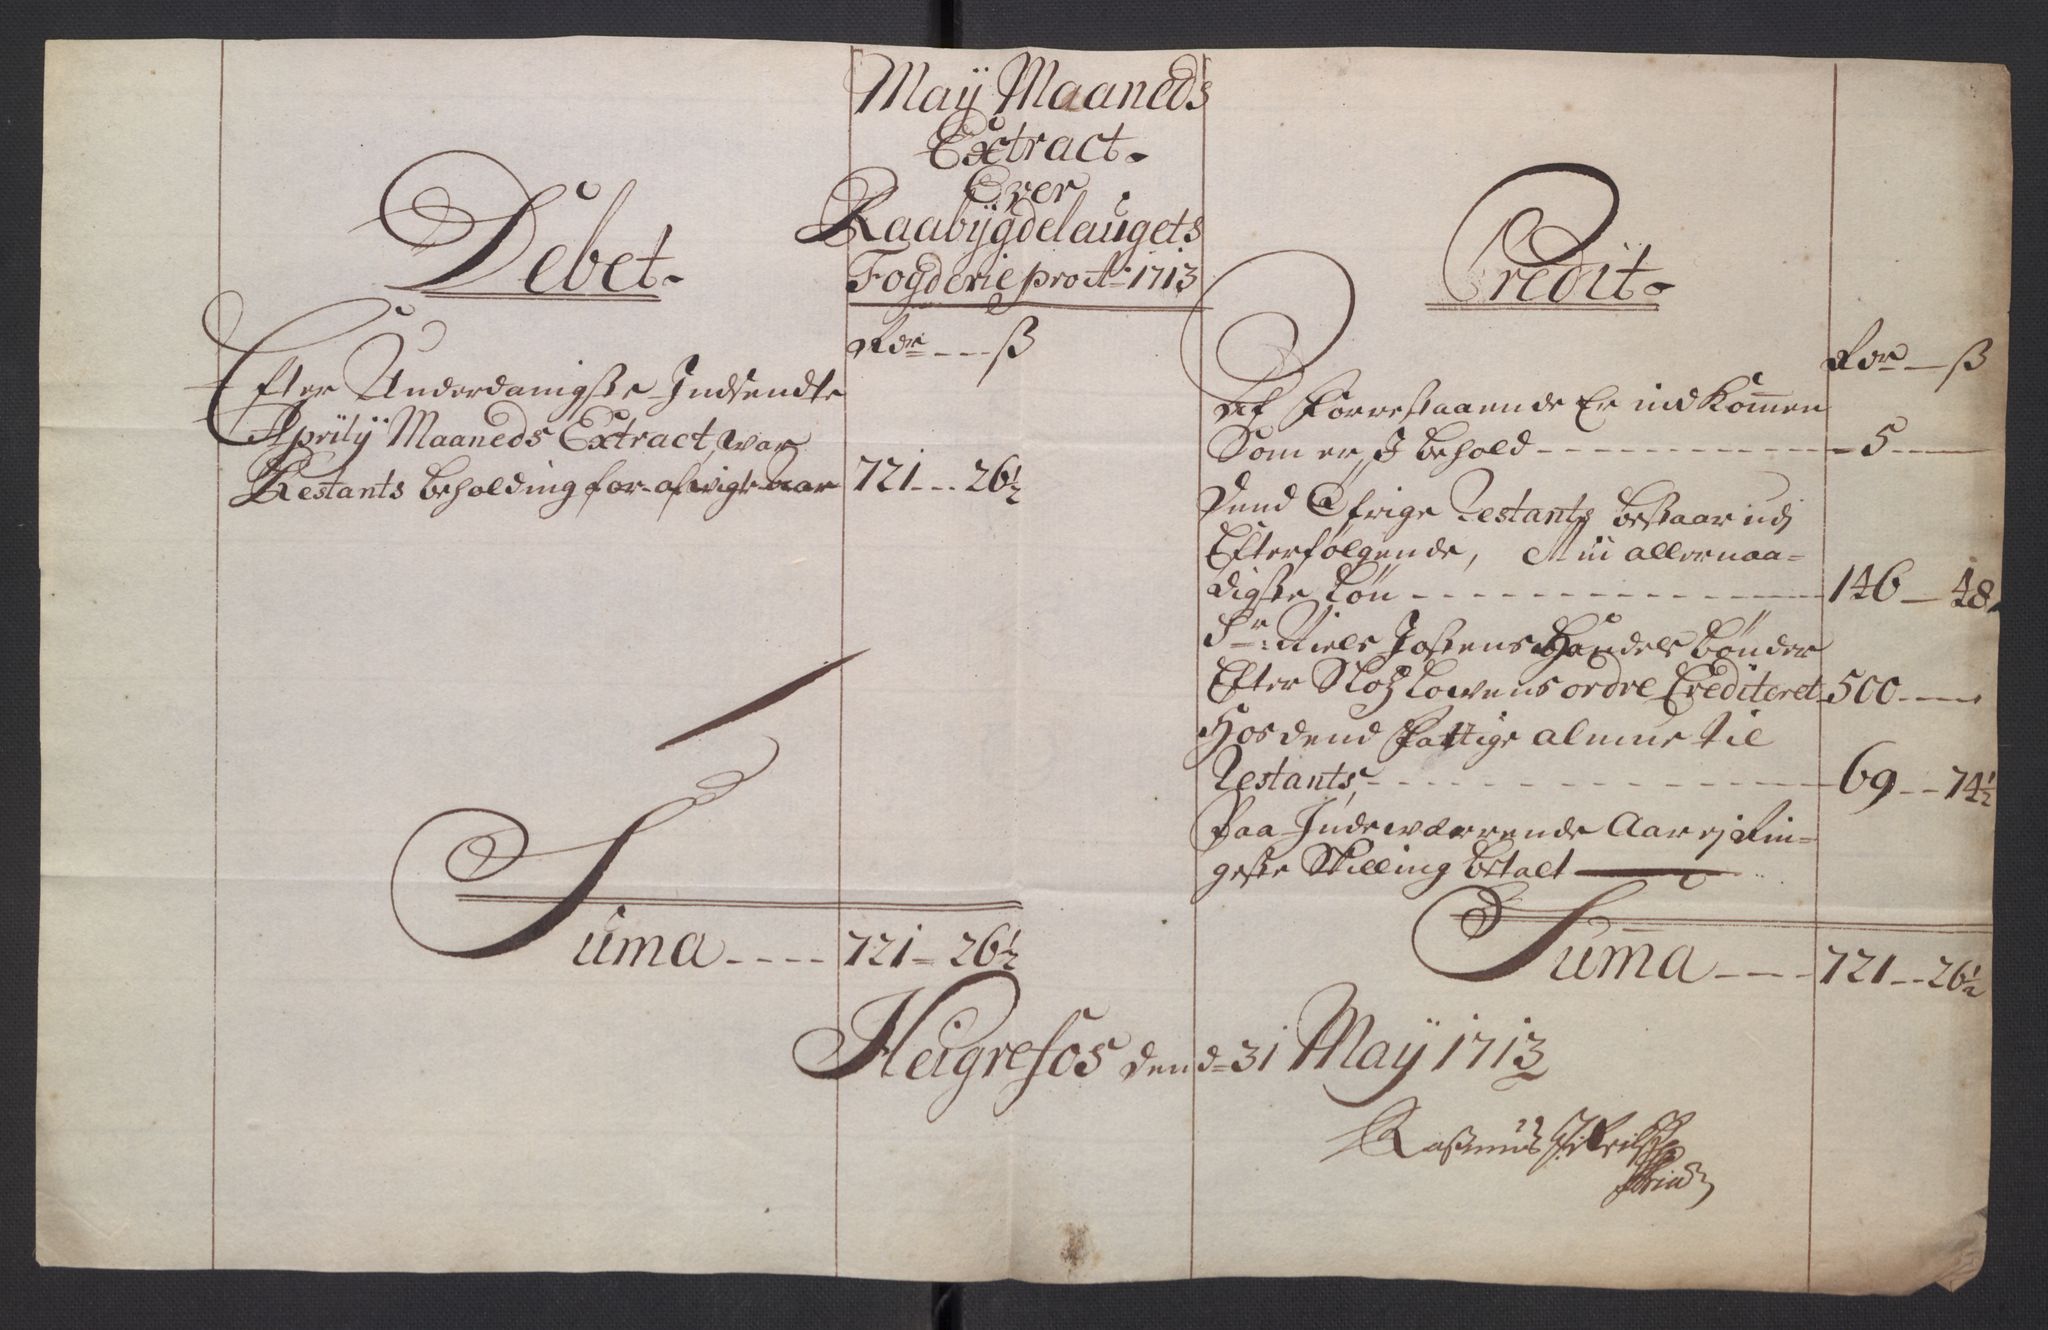 Maÿ Maaneds
Extract.
Over
Raabÿgdelaugets
Fogderie pro Ao 1713
Debet.
Rdr --- ß
Efter Underdanigste Indsendte
Aprilÿ Maaneds Extract, war
Restants beholding for afwigte Aar 721 --- 26½
Suma ---- 721 - 26½
Credit.
Rdr --- ß
Af Forrestaaende Er indkommen
Som er J behold - 5 -
Dend Öfrige Restants bestaar udj
Efterfølgende, Min allernaa-
digste Løn - 146 - 48
Sr: Niels Jossens Handels bønder
Efter Slotz Lowens ordre Crediteret 500 -
Hos dend Fattige almue til
Restants, - 69 -- 74½
Paa Indewærrende Aar ej Rin-
geste Skilling betalt
Suma ---- 721 -- 26½
Heigrefos dend 31 Maÿ 1713
Rasmus